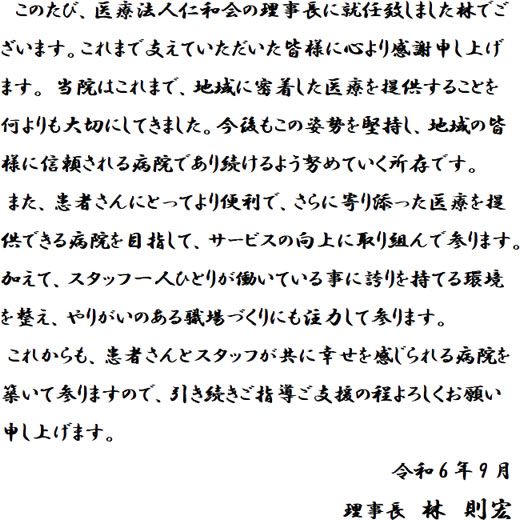 このたび、医療法人仁和会の理事長に就任致しました林でご
ざいます。これまで支えていただいた皆様に心より感謝申し上げ
ます。 当院はこれまで、地域に密着した医療を提供することを
何よりも大切にしてきました。今後もこの姿勢を堅持し、地域の皆
様に信頼される病院であり続けるよう努めていく所存です。
また、患者さんにとってより便利で、さらに寄り添った医療を提
供できる病院を目指して、サービスの向上に取り組んで参ります。
加えて、スタッフ一人ひとりが働いている事に誇りを持てる環境
を整え、やりがいのある職場づくりにも注力して参ります。
これからも、患者さんとスタッフが共に幸せを感じられる病院を
築いて参りますので、引き続きご指導ご支援の程よろしくお願い
申し上げます。
令和6年9月
理事長 林 則宏